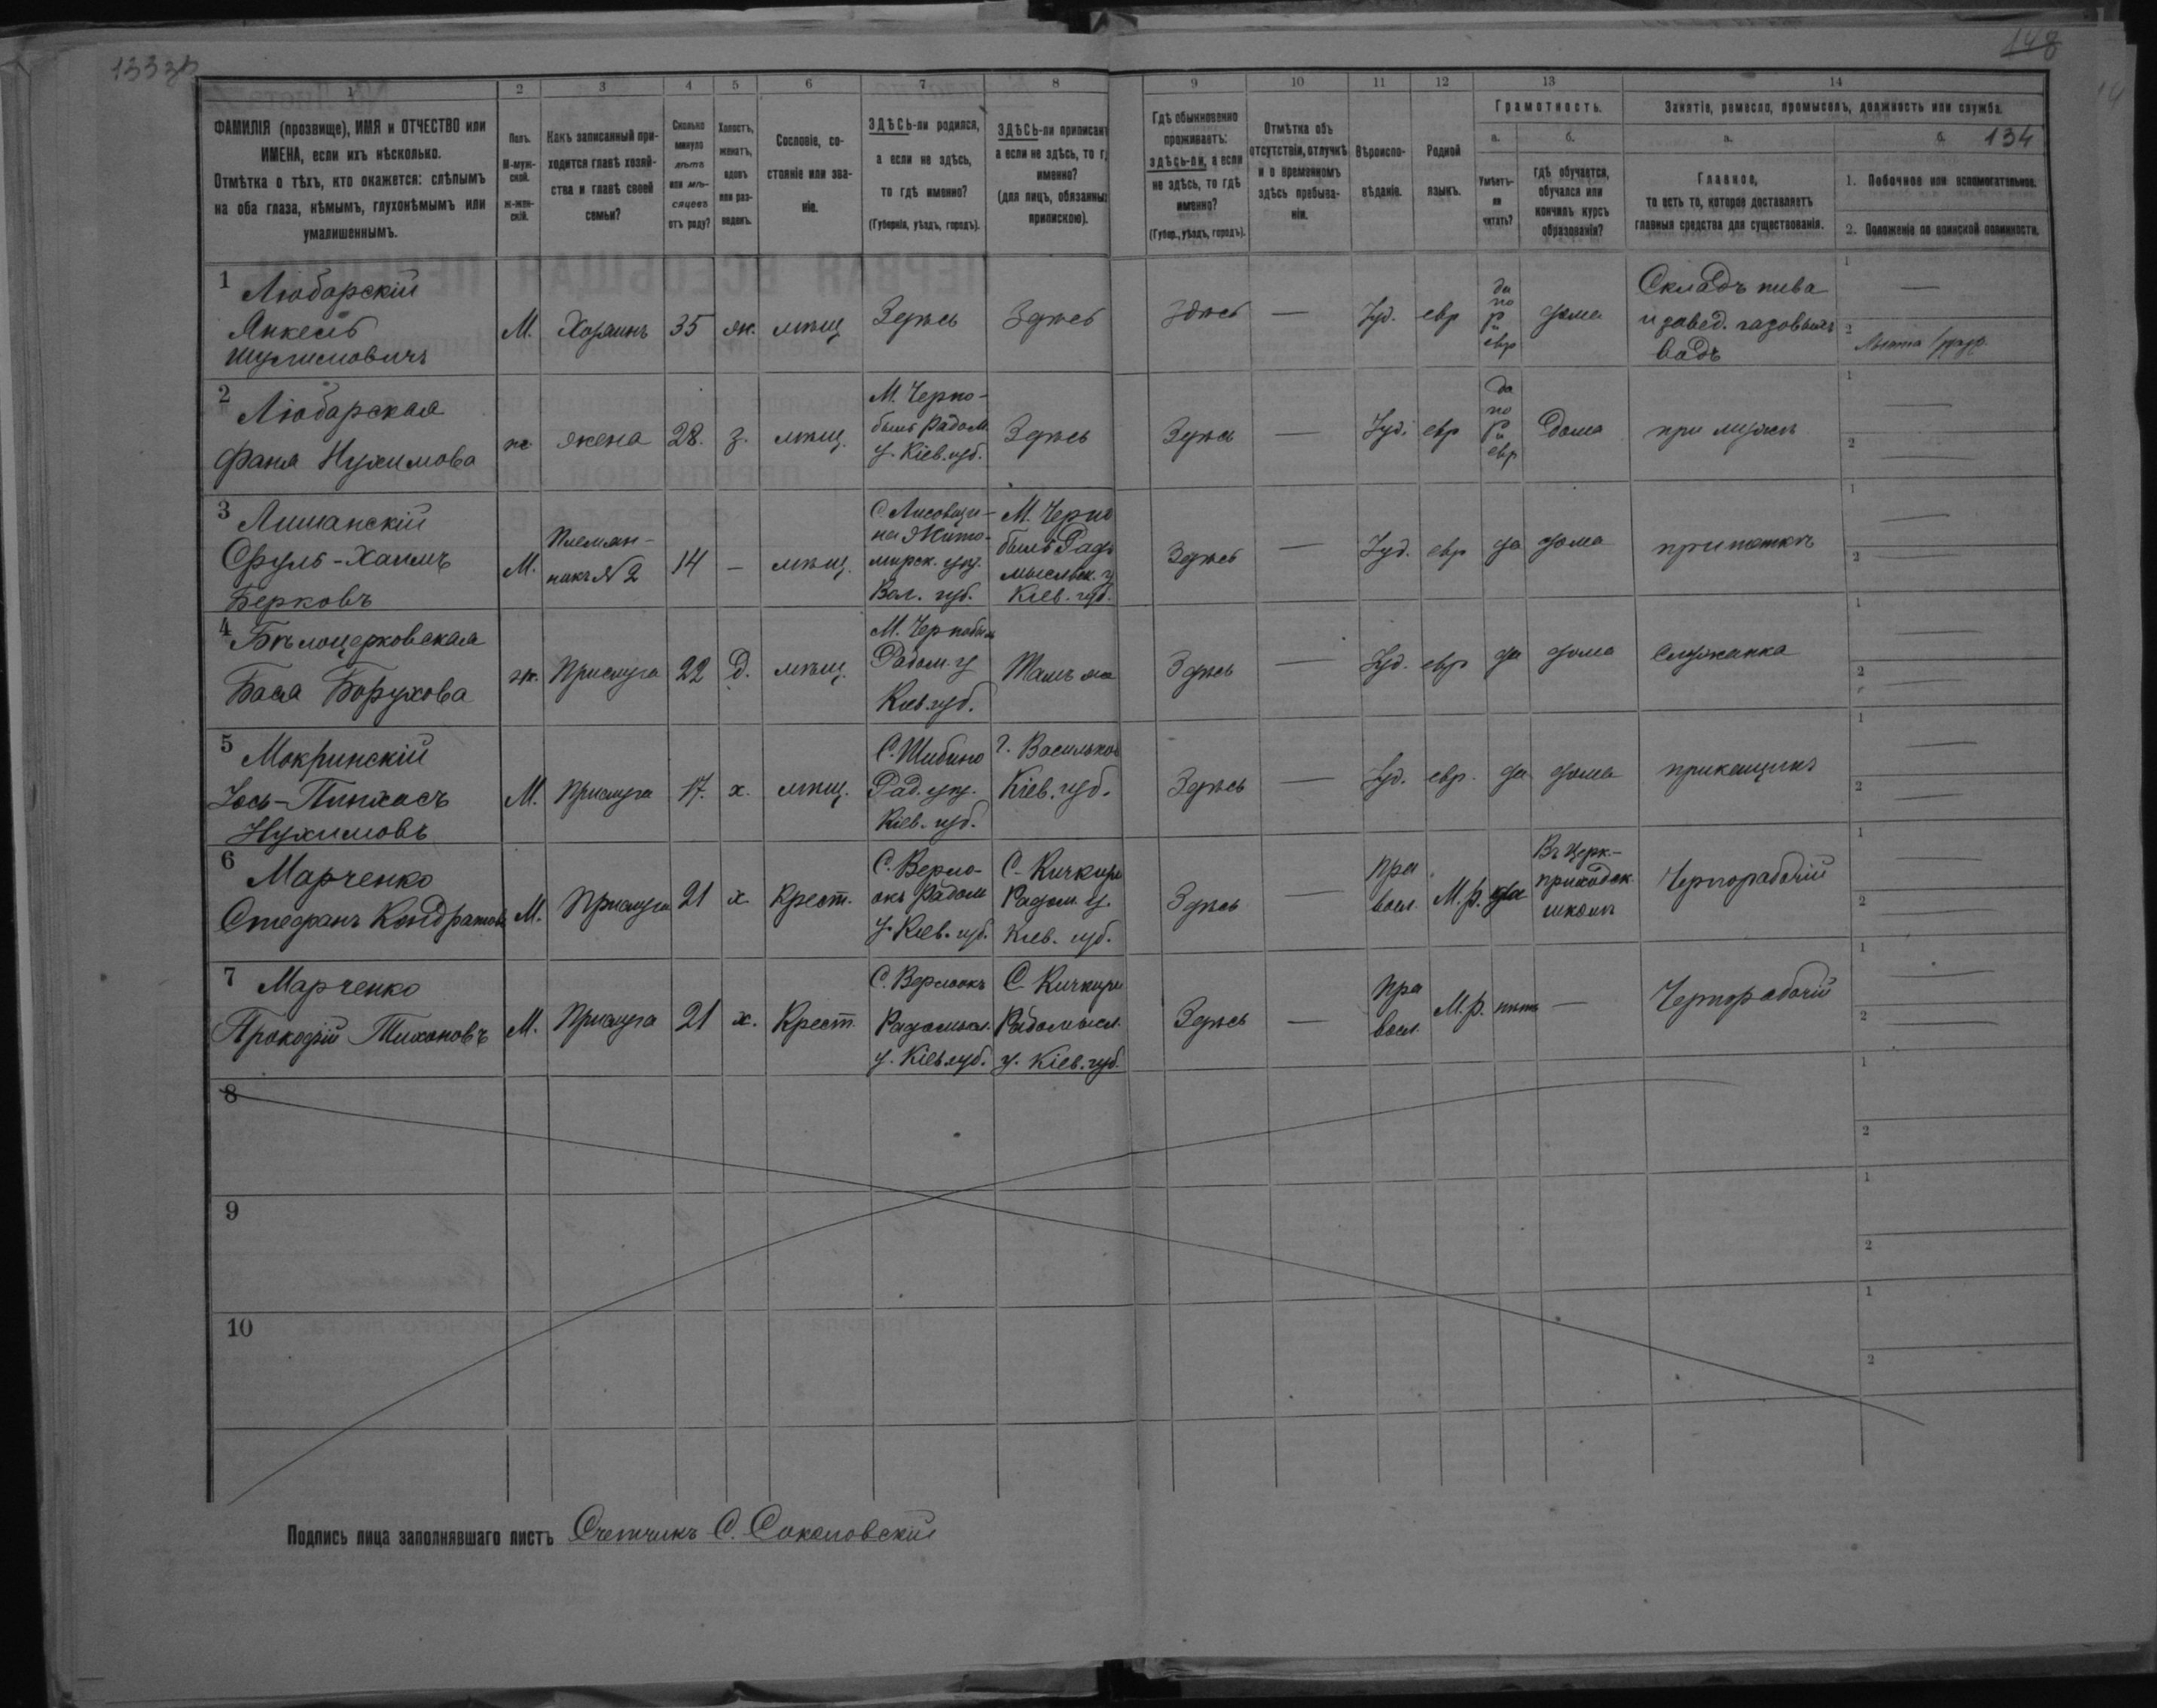 133зв
148
134
1
2
3
4
5
6
7
8
9
10
11
12
13
14
ФАМИЛІЯ (прозвище), ИМЯ и ОТЧЕСТВО или
ИМЕНА, если ихъ нѣсколько.
Отмѣтка о тѣхъ, кто окажется: слѣпымъ
на оба глаза, нѣмымъ, глухонѣмымъ или
умалишеннымъ.
Полъ.
М-муж-
ской.
ж-жен-
скій.
Какъ записанный при-
ходится главѣ хозяй-
ства и главѣ своей
семьи?
Сколько
минуло
лѣтъ
или мѣ-
сяцевъ
отъ роду?
Холостъ,
женатъ,
вдовъ
или раз-
веденъ.
Сословіе, со-
стояніе или зва-
ніе.
ЗДѢСЬ-ли родился,
а если не здѣсь,
то гдѣ именно?
(Губернія, уѣздъ, городъ).
ЗДѢСЬ-ли приписан
а если не здѣсь, то г
именно?
(для лицъ, обязанны
припискою).
Гдѣ обыкновенно
проживаетъ:
здѣсь-ли, а если
не здѣсь, то гдѣ
именно?
(Губер., уѣздъ, городъ).
Отмѣтка объ
отсутствіи, отлучкѣ
и о временномъ
здѣсь пребыва-
ніи.
Вѣроиспо-
вѣданіе.
Родной
языкъ.
Грамотность.
а.
Умѣетъ-
ли
читать?
б.
гдѣ обучается,
обучался или
кончилъ курсъ
образованія?
Занятіе, ремесло, промыселъ, должность или служба.
а.
Главное,
то есть то, которое доставляетъ
главныя средства для существованія.
б.
1. Побочное или вспомогательное.
2. Положеніе по воинской повинности.
1 Любарскій
Янкель
М. Хозяинъ 35 ж. мѣщ Здѣсь Здѣсь Здѣсь — Іуд. евр
да
по
р
и
евр
дома
Складъ пива
и завед. газовыхъ
водъ
1 —
2
2 Любарская
Фаня Нухимова
ж. жена 28. з. мѣщ.
М. Черно-
быль Радом.
у. Кіев. губ.
Здѣсь Здѣсь — Іуд. евр
да
по
р
и
евр
дома при мужѣ
1 —
2 —
3 Лиманскій
Сруль-Хаимъ
Берковъ
М.
Племян-
никъ №2
14 — мѣщ.
С. Лисовщи-
на Жито-
мирск. уѣз.
Вол. губ.
М. Черно
быль Радо
мысльск. у
Кіев. губ.
Здѣсь — Іуд. евр да дома при теткѣ
1 —
2 —
4 Бѣлоцерковская
Бася Борухова
ж. Прислуга 22 д. мѣщ.
М. Чернобыль
Радом. у
Кіев. губ.
Тамъ же
Здѣсь — Іуд. евр да дома служанка
1 —
2 —
5 Мокринскій
Іось-Пинхасъ
Нухимовъ
М. Прислуга 17. х. мѣщ.
С. Шибино
Рад. уѣз.
Кіев. губ.
г. Васильков
Кіев. губ.
Здѣсь — Іуд. евр. да дома прикащикъ
1 —
2 —
6 Марченко
Стефанъ Кондратовъ
М. Прислуга 21 х Крест.
Радом
у. Кіев. губ.
Радом. у.
Кіев. губ.
Здѣсь —
пра
восл.
М.р. да
Въ церк.-
приходск.
школѣ
Чернорабочій
1 —
2 —
7 Марченко
Прокофій Тихоновъ
М. Прислуга 21 х. Крест.
Радомысл.
у. Кіев. губ.
Радомысл.
у. Кіев. губ.
Здѣсь —
пра
восл.
М.р. нѣтъ — Чернорабочій
1 —
2 —
8
1
2
9
1
2
10
1
2
Подпись лица заполнявшаго листъ Счетчикъ С. Соколовскій